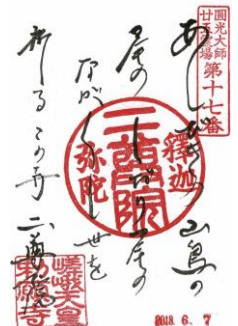 圓光大師
廿五霊場
第十七番
あしびきの 山鳥の
尾の しだり尾の
なが〱し世を
祈るこの寺 二尊院
釋迦
二尊院
弥陀
嵯峨天皇
勅願寺
2018. 6. 7